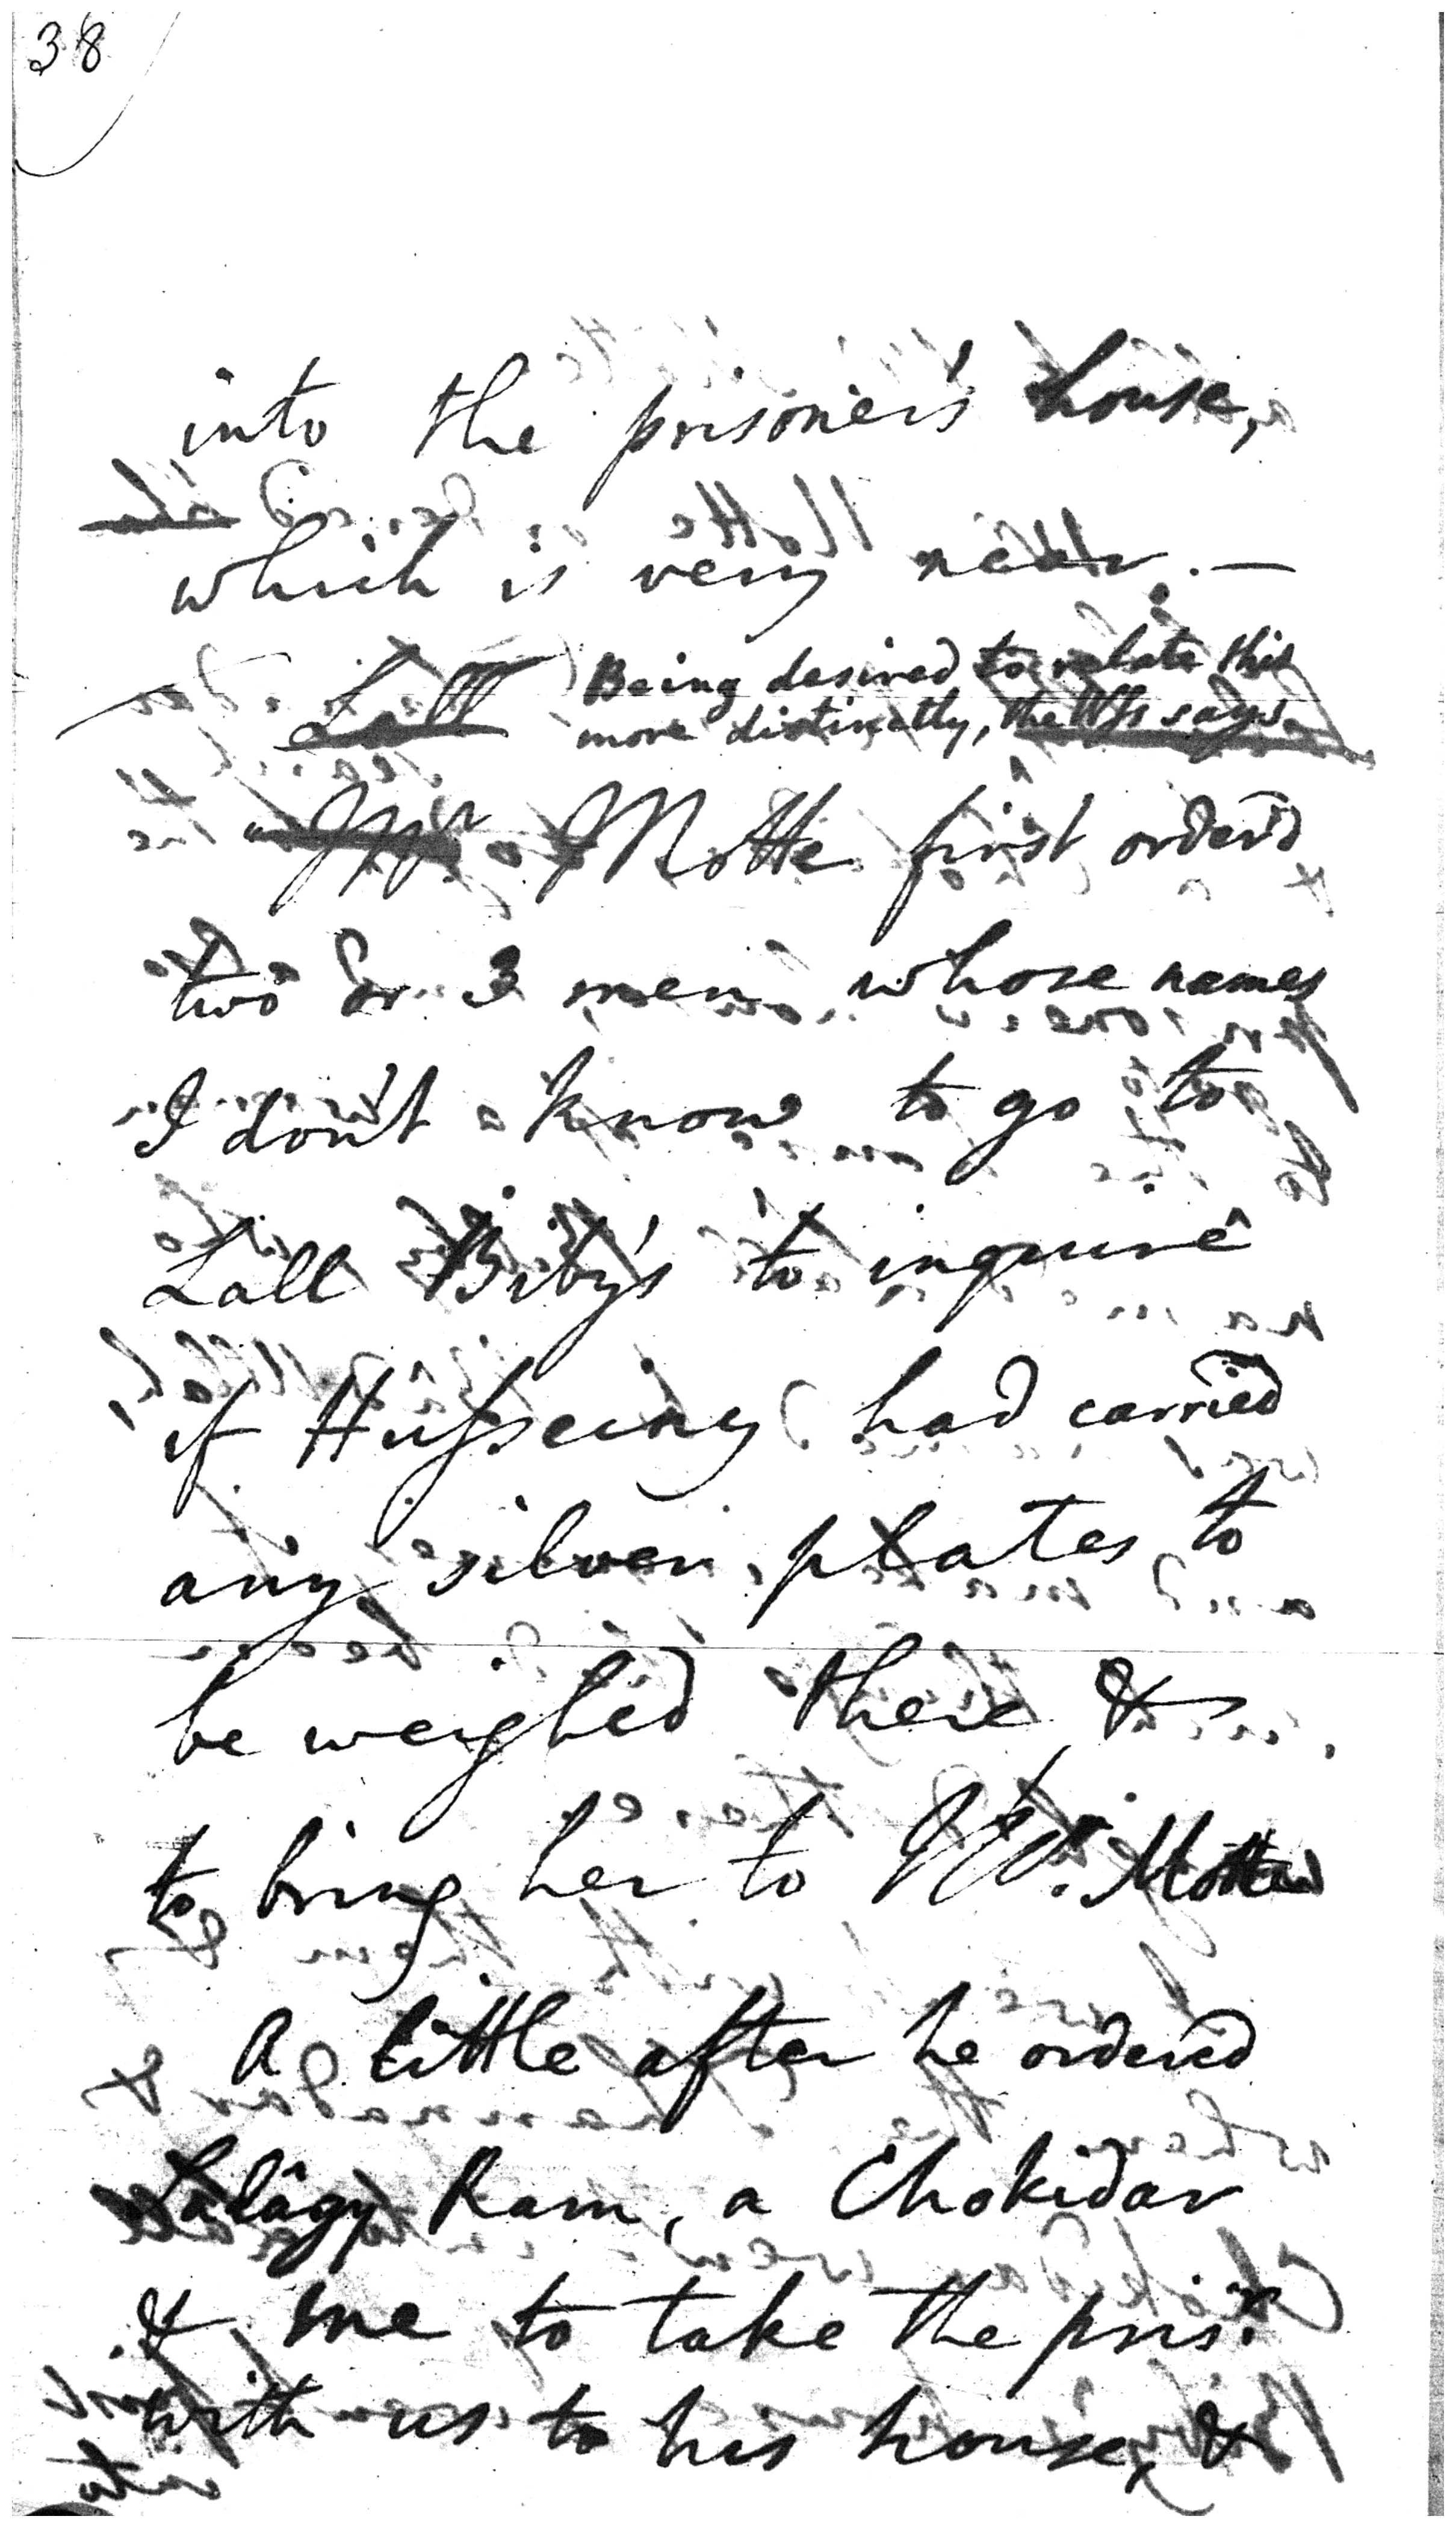 38
into the prisoner's house,
which is very near. —
Lall Being desired to relate this
more distinctly, the Ws says
Mr Motte first order'd
two or 3 men whose names
I don't know to go to
Lall Biby's to inquire
if Husseiny had carried
any silver plates to
be weighed there, &
to bring her to Mr. Motte
A little after he ordered
Ram, a Chokidar
& me to take the prisr.
with us to his house, &